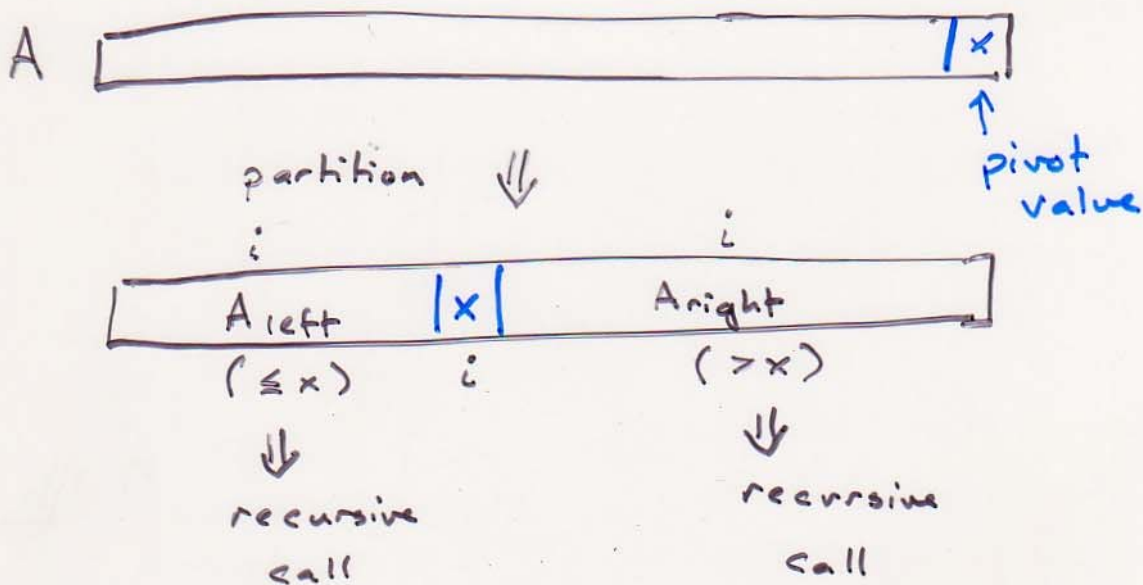 A
x
pivot
value
partition ⇓
i i
A left |x| A right
(≤ x) i (> x)
⇓ ⇓
recursive
call
recursive
call